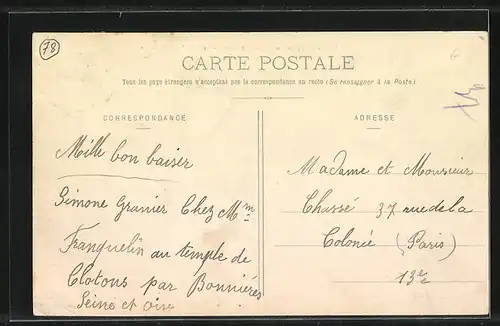 78
CARTE POSTALE
Tous les pays étrangers n'acceptent pas la correspondance au recto (Se renseigner à la Poste)
CORRESPONDANCE
Mille bon baiser
Simone Granier Chez Mm
Franquelin au temple de
Clotons par Bonnières
Seine et Oise
ADRESSE
Madame et Monsieur
Chassé 37 rue de la
Colonie (Paris)
13e